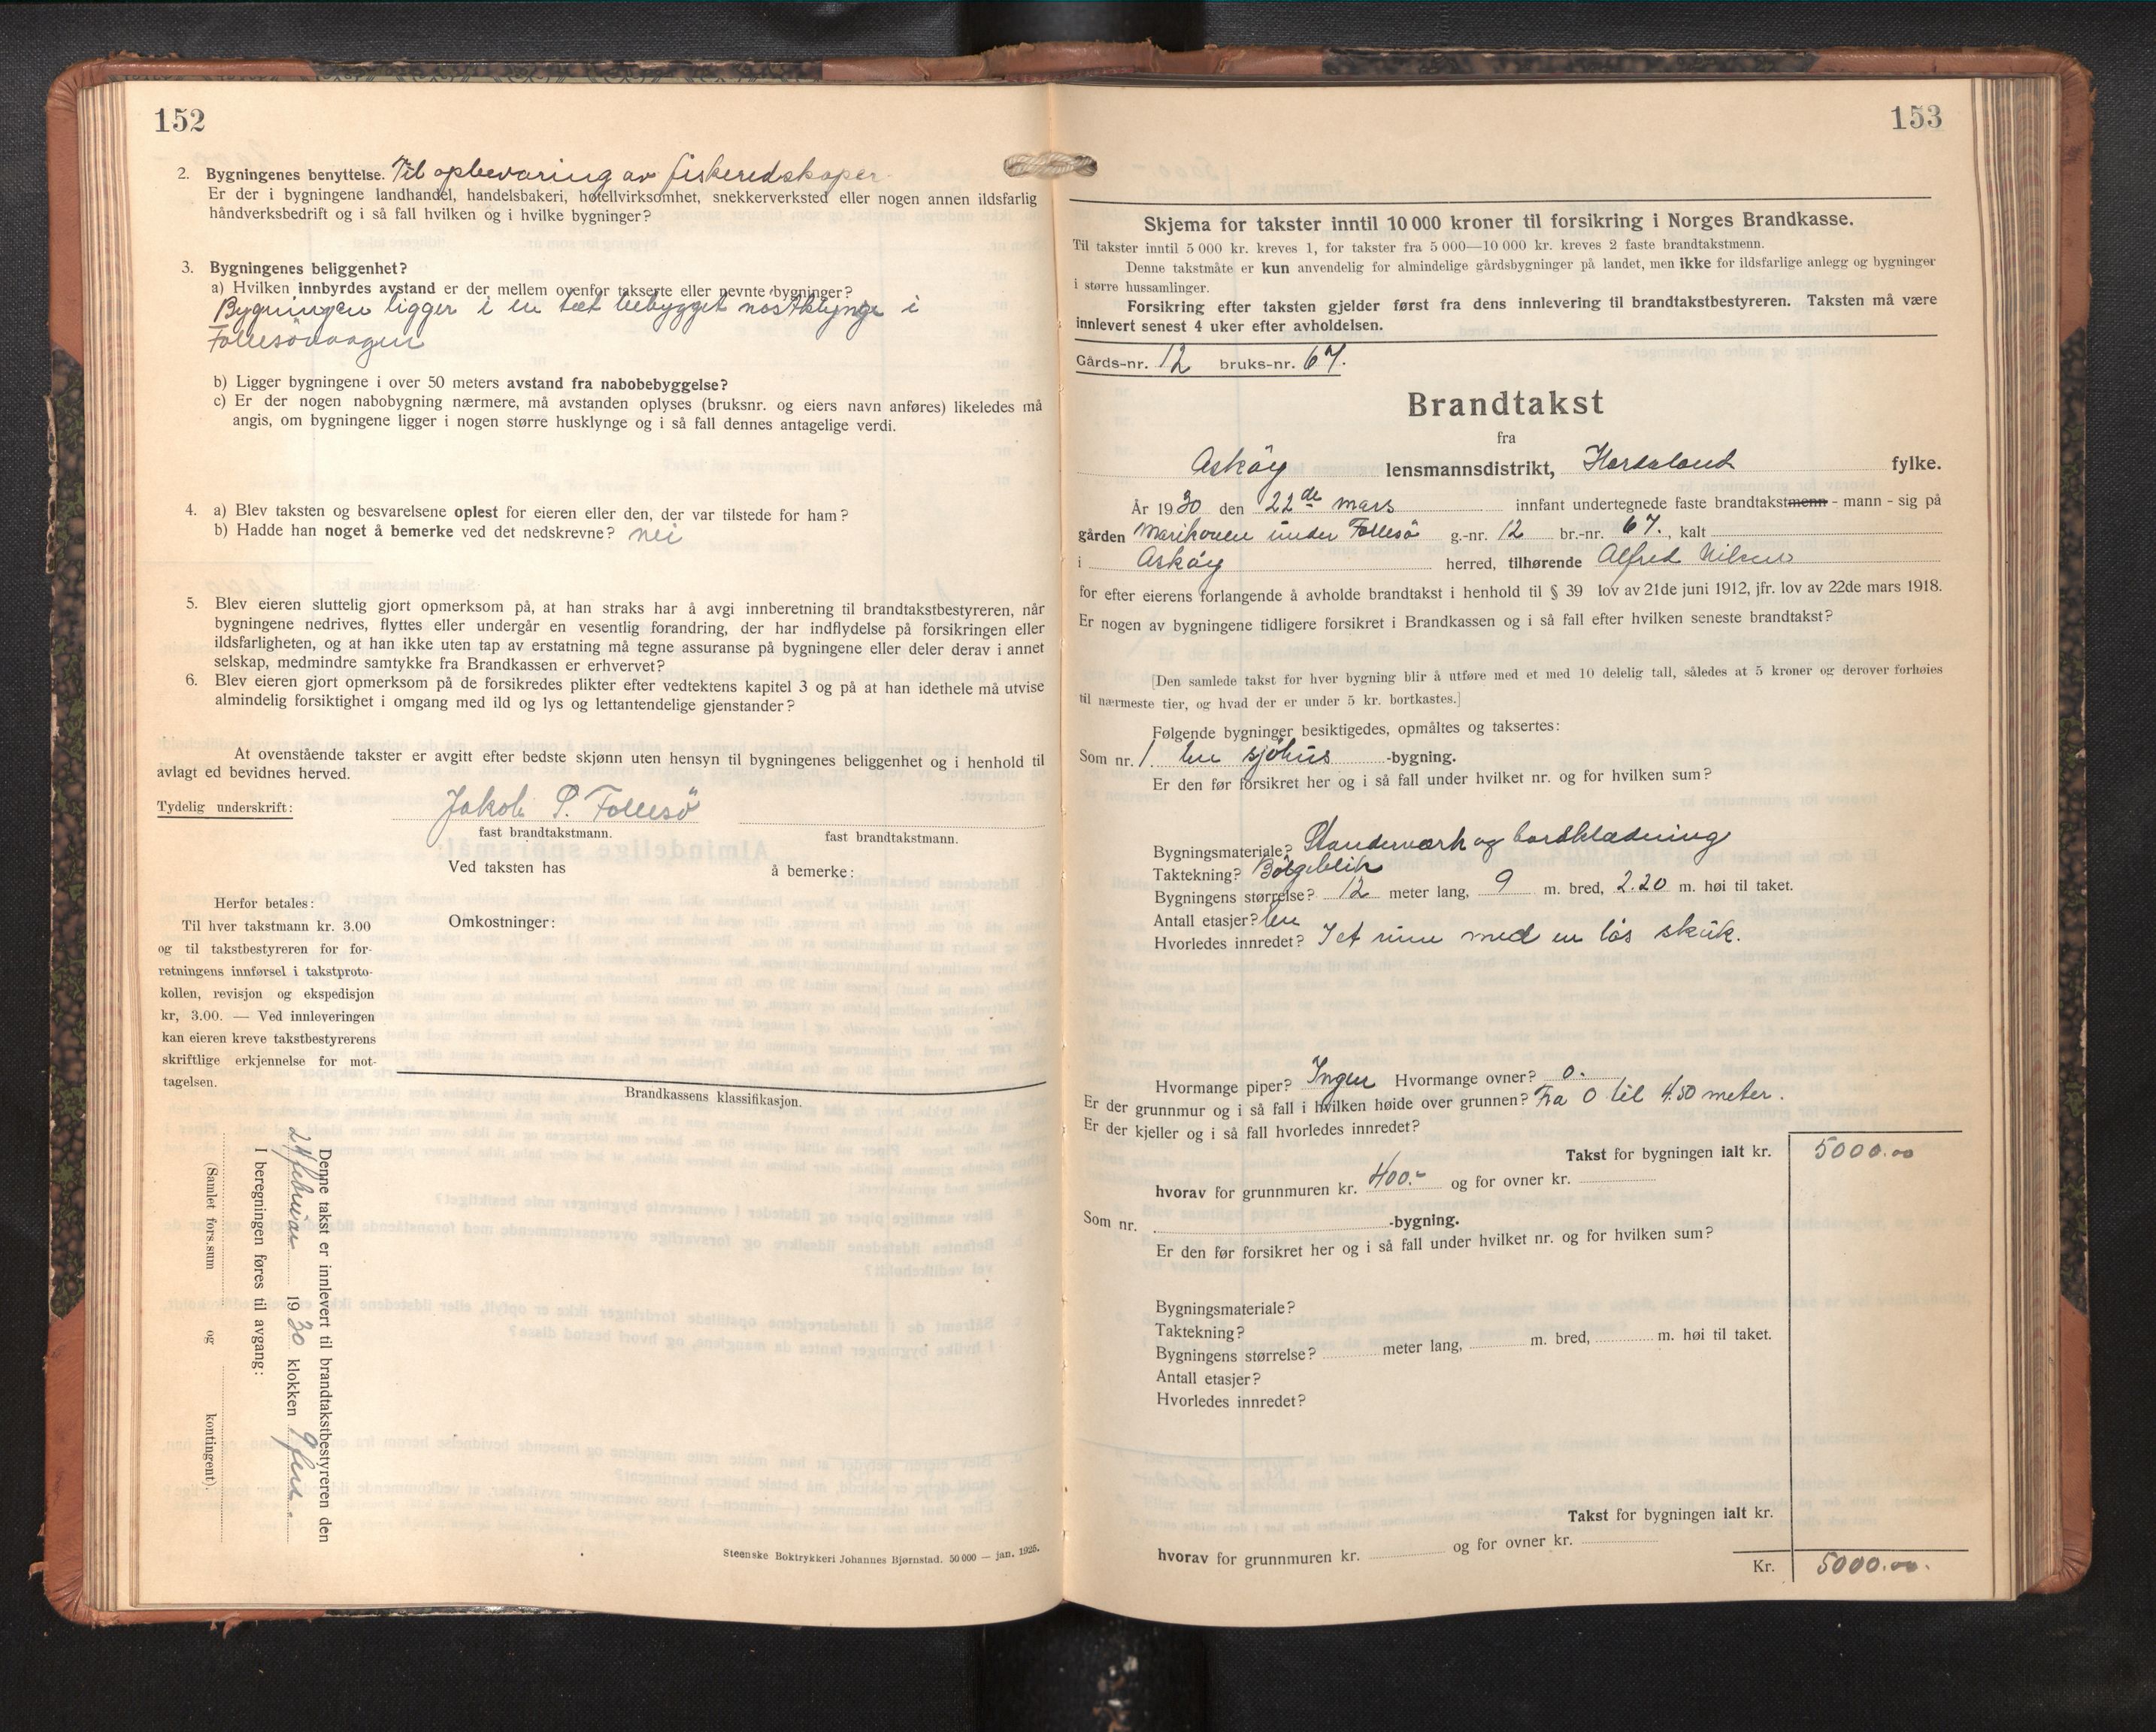 152
2. Bygningenes benyttelse. Til opbevaring av fiskeredskaper
Er der i bygningene landhandel, handelsbakeri, høtellvirksomhet, snekkerverksted eller nogen annen ildsfarlig
håndverksbedrift og i så fall hvilken og i hvilke bygninger?
3. Bygningenes beliggenhet?
a) Hvilken innbyrdes avstand er der mellem ovenfor takserte eller nevnte bygninger?
Bygningen ligger i en tæt bebygget nostklynge i
Follesövaagen
b) Ligger bygningene i over 50 meters avstand fra nabobebyggelse?
c) Er der nogen nabobygning nærmere, må avstanden oplyses (bruksnr. og eiers navn anføres) likeledes må
angis, om bygningene ligger i nogen større husklynge og i så fall dennes antagelige verdi.
4. a) Blev taksten og besvarelsene oplest for eieren eller den, der var tilstede for ham?
b) Hadde han noget å bemerke ved det nedskrevne? nei
5. Blev eieren sluttelig gjort opmerksom på, at han straks har å avgi innberetning til brandtakstbestyreren, når
bygningene nedrives, flyttes eller undergår en vesentlig forandring, der har indflydelse på forsikringen eller
ildsfarligheten, og at han ikke uten tap av erstatning må tegne assuranse på bygningene eller deler derav i annet
selskap, medmindre samtykke fra Brandkassen er erhvervet?
6. Blev eieren gjort opmerksom på de forsikredes plikter efter vedtektens kapitel 3 og på at han idethele må utvise
almindelig forsiktighet i omgang med ild og lys og lettantendelige gjenstander?
At ovenstående takster er avgitt efter bedste skjønn uten hensyn til bygningenes beliggenhet og i henhold til
avlagt ed bevidnes herved.
Tydelig underskrift: Jakob P. Follesö
fast brandtakstmann. fast brandtakstmann.
Ved taksten has å bemerke:
Herfor betales:
Til hver takstmann kr. 3.00
og til takstbestyreren for for-
retningens innførsel i takstproto-
kollen, revisjon og ekspedisjon
kr, 3.00. — Ved innleveringen
kan eieren kreve takstbestyrerens
skriftlige erkjennelse for mot-
tagelsen.
Omkostninger:
Brandkassens klassifikasjon.
Denne takst er innlevert til brandtakstbestyreren den
24 februar 1930 klokken 9 fm
I beregningen føres til avgang:
(Samlet fors.sum og kontingent).
Steenske Boktrykkeri Johannes Bjørnstad. 50 000 — jan. 1925.
153
Skjema for takster inntil 10 000 kroner til forsikring i Norges Brandkasse.
Til takster inntil 5 000 kr. kreves 1, for takster fra 5 000—10 000 kr. kreves 2 faste brandtakstmenn.
Denne takstmåte er kun anvendelig for almindelige gårdsbygninger på landet, men ikke for ildsfarlige anlegg og bygninger
i større hussamlinger.
Forsikring efter taksten gjelder først fra dens innlevering til brandtakstbestyreren. Taksten må være
innlevert senest 4 uker efter avholdelsen.
Gårds-nr. 12 bruks-nr. 67.
Brandtakst
fra
Asköy lensmannsdistrikt, Hordaland fylke.
År 1930 den 22de mars innfant undertegnede faste brandtakstmenn - mann - sig på
gården Marikoven under Follesö g.-nr. 12 br.-nr. 67., kalt
i Asköy herred, tilhørende Alfred Nilsen
for efter eierens forlangende å avholde brandtakst i henhold til § 39 lov av 21de juni 1912, jfr. lov av 22de mars 1918.
Er nogen av bygningene tidligere forsikret i Brandkassen og i så fall efter hvilken seneste brandtakst?
[Den samlede takst for hver bygning blir å utføre med et med 10 delelig tall, således at 5 kroner og derover forhøies
til nærmeste tier, og hvad der er under 5 kr. bortkastes.]
Følgende bygninger besiktigedes, opmåltes og taksertes:
Som nr. 1. En sjöhus -bygning.
Er den før forsikret her og i så fall under hvilket nr. og for hvilken sum?
Bygningsmateriale? Standerværk og bordklædning
Taktekning? Bölgeblik
Bygningens størrelse? 12 meter lang, 9 m. bred, 2.20 m. høi til taket.
Antall etasjer? En
Hvorledes innredet? I et rum med en lös skuk.
Hvormange piper? Ingen Hvormange ovner? 0.
Er der grunnmur og i så fall i hvilken høide over grunnen? Fra 0 til 4.50 meter.
Er der kjeller og i så fall hvorledes innredet?
Takst for bygningen ialt kr. 5000.00
hvorav for grunnmuren kr. 400.- og for ovner kr.
Som nr. -bygning.
Er den før forsikret her og i så fall under hvilket nr. og for hvilken sum?
Bygningsmateriale?
Taktekning?
Bygningens størrelse? meter lang, m. bred, m. høi til taket.
Antall etasjer?
Hvorledes innredet?
Takst for bygningen ialt kr.
hvorav for grunnmuren kr. og for ovner kr.
Kr. 5000.00.